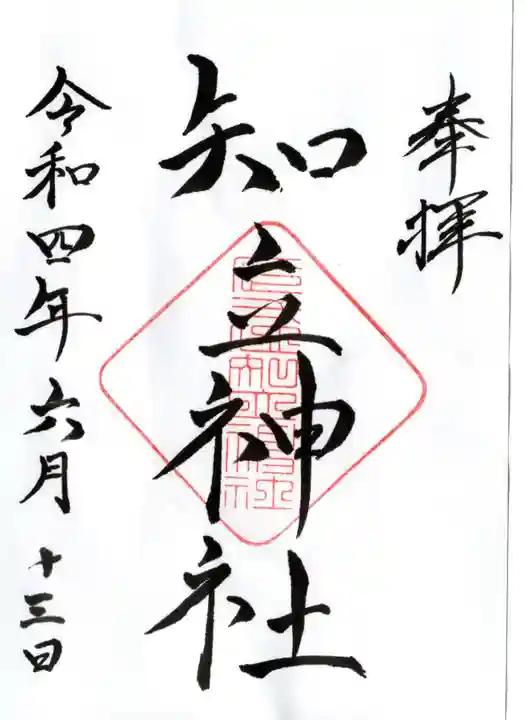 奉拝
知立神社
令和四年六月十三日